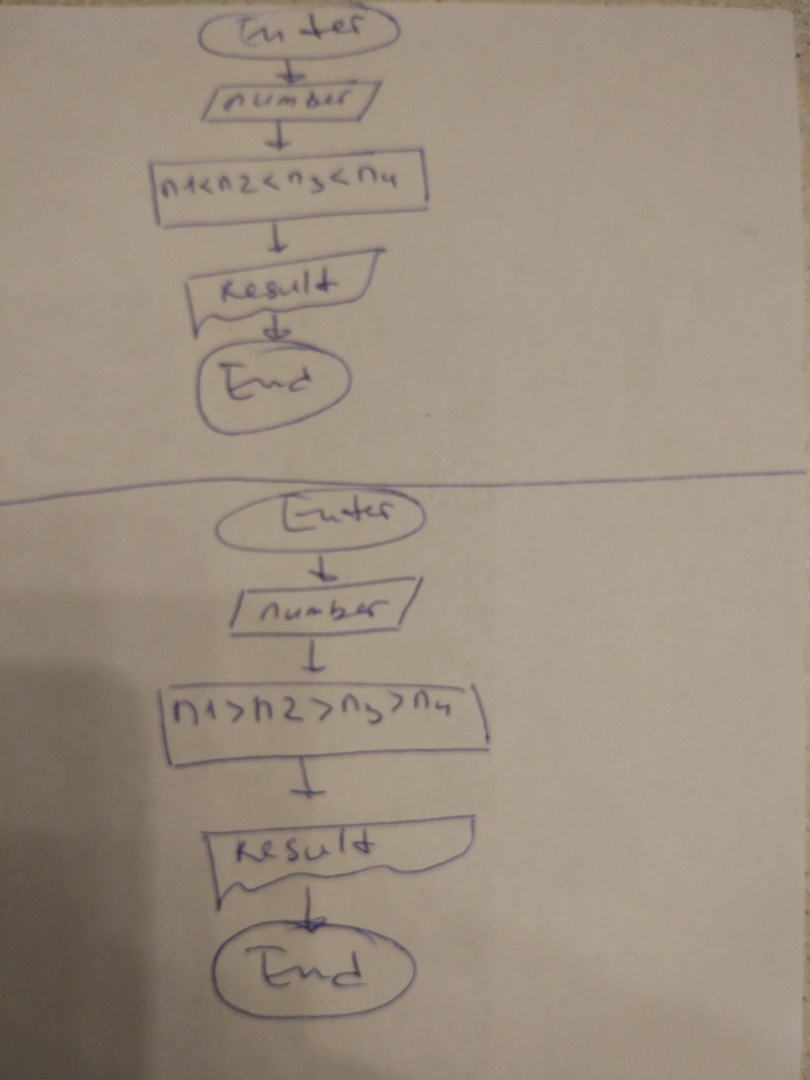 Enter
number
n1<n2<n3<n4
Result
End
Enter
number
n1>n2>n3>n4
Result
End